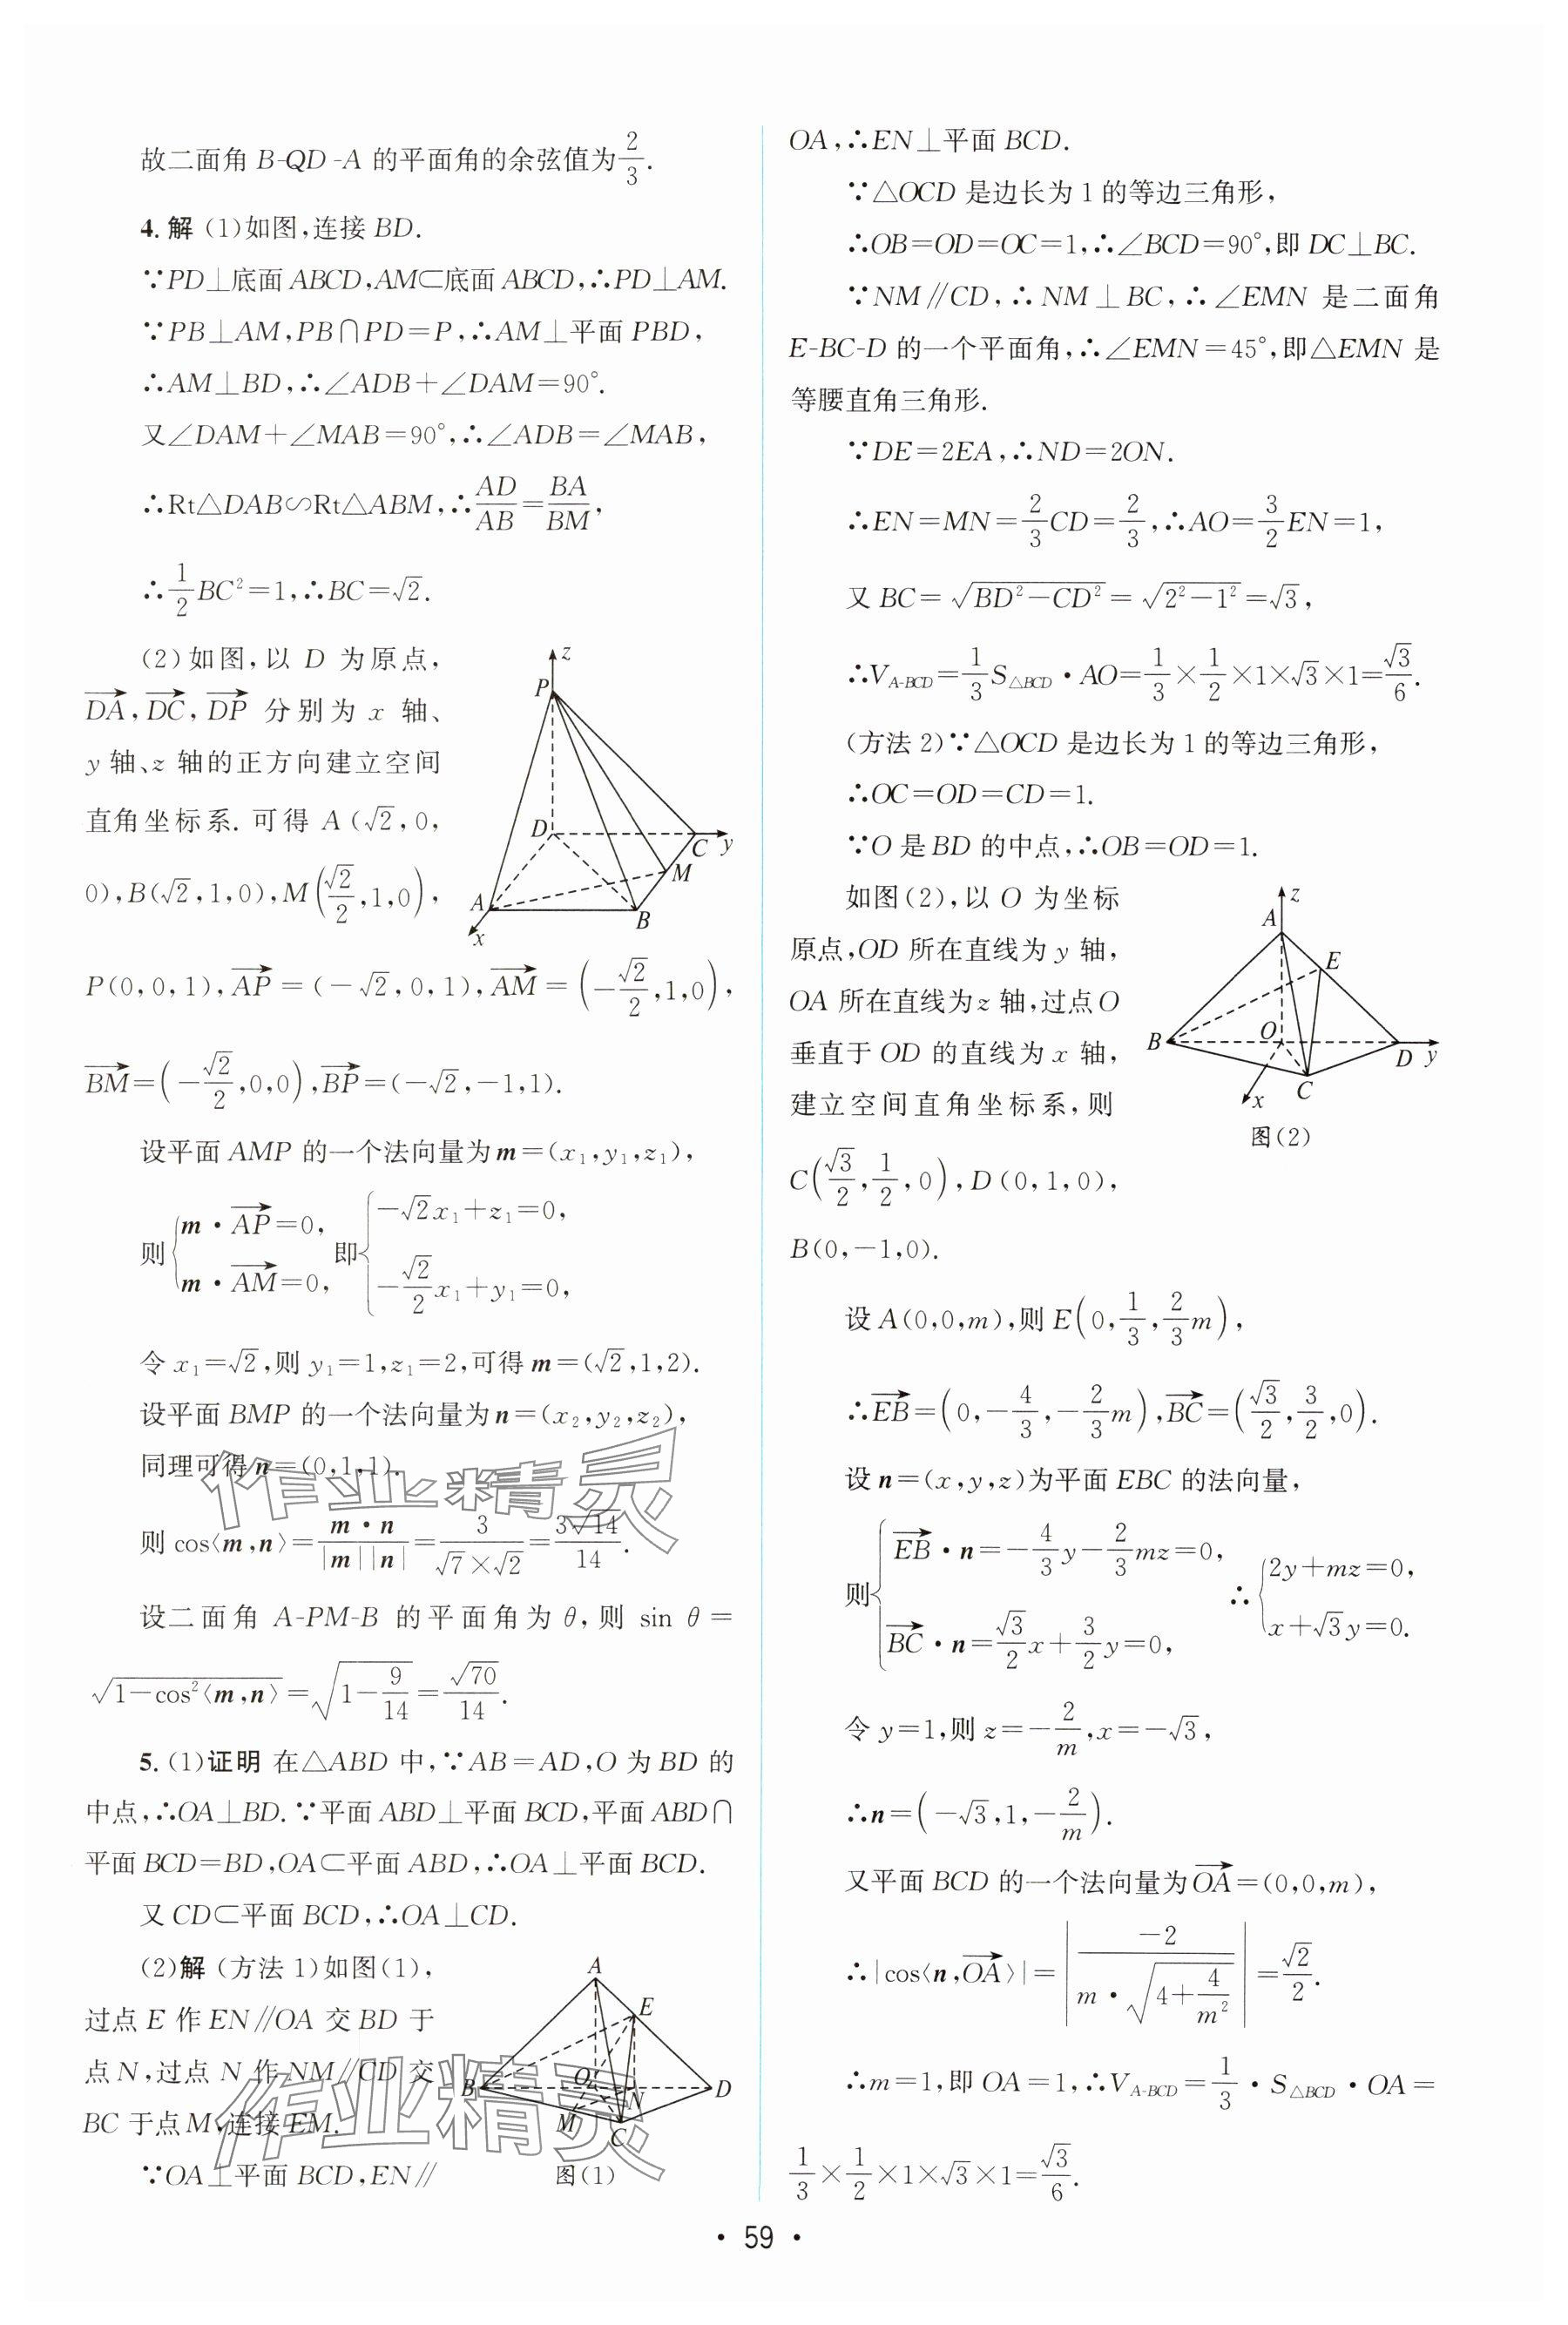 故二面角 B-QD-A 的平面角的余弦值为 2/3.
4. 解 (1)如图,连接 BD.
∵PD⊥底面 ABCD,AM⊂底面 ABCD,∴PD⊥AM.
∵PB⊥AM,PB∩PD=P,∴AM⊥平面 PBD,
∴AM⊥BD,∴∠ADB+∠DAM=90°.
又∠DAM+∠MAB=90°,∴∠ADB=∠MAB,
∴Rt△DAB∽Rt△ABM,∴AD/AB=BA/BM,
∴1/2 BC²=1,∴BC=√2.
(2)如图,以 D 为原点,
DA→,DC→,DP→ 分别为 x 轴、
y 轴、z 轴的正方向建立空间
直角坐标系.可得 A(√2,0,
0),B(√2,1,0),M(√2/2,1,0),
P(0,0,1),AP→=(-√2,0,1),AM→=(-√2/2,1,0),
BM→=(-√2/2,0,0),BP→=(-√2,-1,1).
z
P
D
C
y
M
A
B
x
设平面 AMP 的一个法向量为 m=(x₁,y₁,z₁),
则{m·AP→=0, m·AM→=0, 即{-√2x₁+z₁=0, -√2/2 x₁+y₁=0,
令 x₁=√2,则 y₁=1,z₁=2,可得 m=(√2,1,2).
设平面 BMP 的一个法向量为 n=(x₂,y₂,z₂),
同理可得 n=(0,1,1).
则 cos⟨m,n⟩=m·n/|m||n|=3/(√7×√2)=3√14/14.
设二面角 A-PM-B 的平面角为 θ,则 sin θ=
√(1-cos²⟨m,n⟩)=√(1-9/14)=√70/14.
5. (1)证明 在△ABD 中,∵AB=AD,O 为 BD 的
中点,∴OA⊥BD.∵平面 ABD⊥平面 BCD,平面 ABD∩
平面 BCD=BD,OA⊂平面 ABD,∴OA⊥平面 BCD.
又 CD⊂平面 BCD,∴OA⊥CD.
(2)解 (方法 1)如图(1),
过点 E 作 EN∥OA 交 BD 于
点 N,过点 N 作 NM∥CD 交
BC 于点 M,连接 EM.
∵OA⊥平面 BCD,EN∥
A
E
B
O
N
D
M
C
图(1)
OA,∴EN⊥平面 BCD.
∵△OCD 是边长为 1 的等边三角形,
∴OB=OD=OC=1,∴∠BCD=90°,即 DC⊥BC.
∵NM∥CD,∴NM⊥BC,∴∠EMN 是二面角
E-BC-D 的一个平面角,∴∠EMN=45°,即△EMN 是
等腰直角三角形.
∵DE=2EA,∴ND=2ON.
∴EN=MN=2/3 CD=2/3,∴AO=3/2 EN=1,
又 BC=√(BD²-CD²)=√(2²-1²)=√3,
∴V_A-BCD=1/3 S△BCD·AO=1/3×1/2×1×√3×1=√3/6.
(方法 2)∵△OCD 是边长为 1 的等边三角形,
∴OC=OD=CD=1.
∵O 是 BD 的中点,∴OB=OD=1.
如图(2),以 O 为坐标
原点,OD 所在直线为 y 轴,
OA 所在直线为 z 轴,过点 O
垂直于 OD 的直线为 x 轴,
建立空间直角坐标系,则
C(√3/2,1/2,0),D(0,1,0),
B(0,-1,0).
z
A
E
B
O
D
y
C
x
图(2)
设 A(0,0,m),则 E(0,1/3,2/3 m),
∴EB→=(0,-4/3,-2/3 m),BC→=(√3/2,3/2,0).
设 n=(x,y,z)为平面 EBC 的法向量,
则{EB→·n=-4/3 y-2/3 mz=0, BC→·n=√3/2 x+3/2 y=0, ∴{2y+mz=0, x+√3y=0.
令 y=1,则 z=-2/m,x=-√3,
∴n=(-√3,1,-2/m).
又平面 BCD 的一个法向量为 OA→=(0,0,m),
∴|cos⟨n,OA→⟩|=|-2/(m·√(4+4/m²))|=√2/2.
∴m=1,即 OA=1,∴V_A-BCD=1/3·S△BCD·OA=
1/3×1/2×1×√3×1=√3/6.
作业精灵
作业精灵
· 59 ·